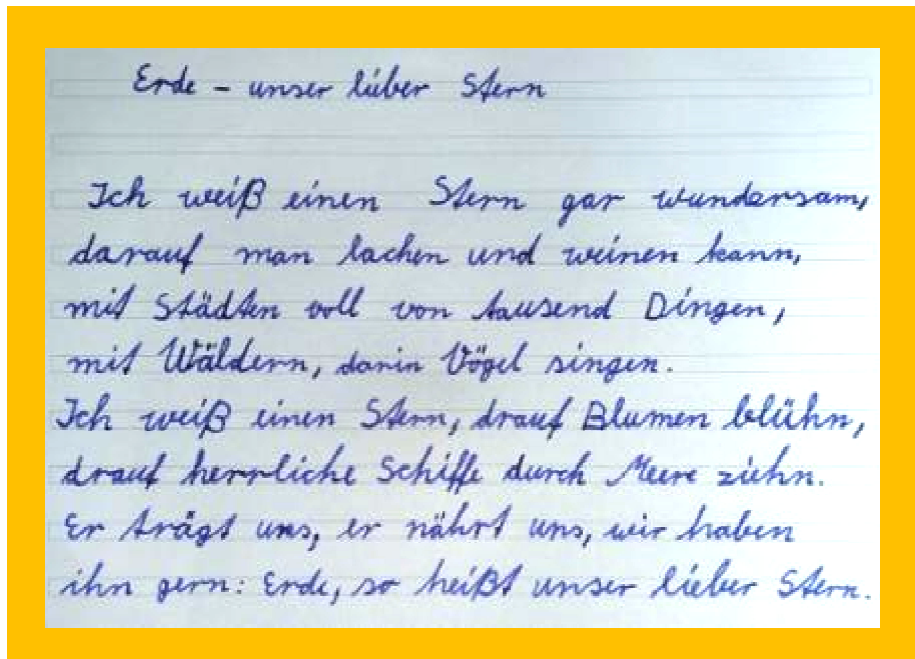 Erde - unser lieber Stern
Ich weiß einen Stern gar wundersam,
darauf man lachen und weinen kann,
mit Städten voll von tausend Dingen,
mit Wäldern, darin Vögel singen.
Ich weiß einen Stern, drauf Blumen blühn,
drauf herrliche Schiffe durch Meere ziehn.
Er trägt uns, er nährt uns, wir haben
ihn gern: Erde, so heißt unser lieber Stern.